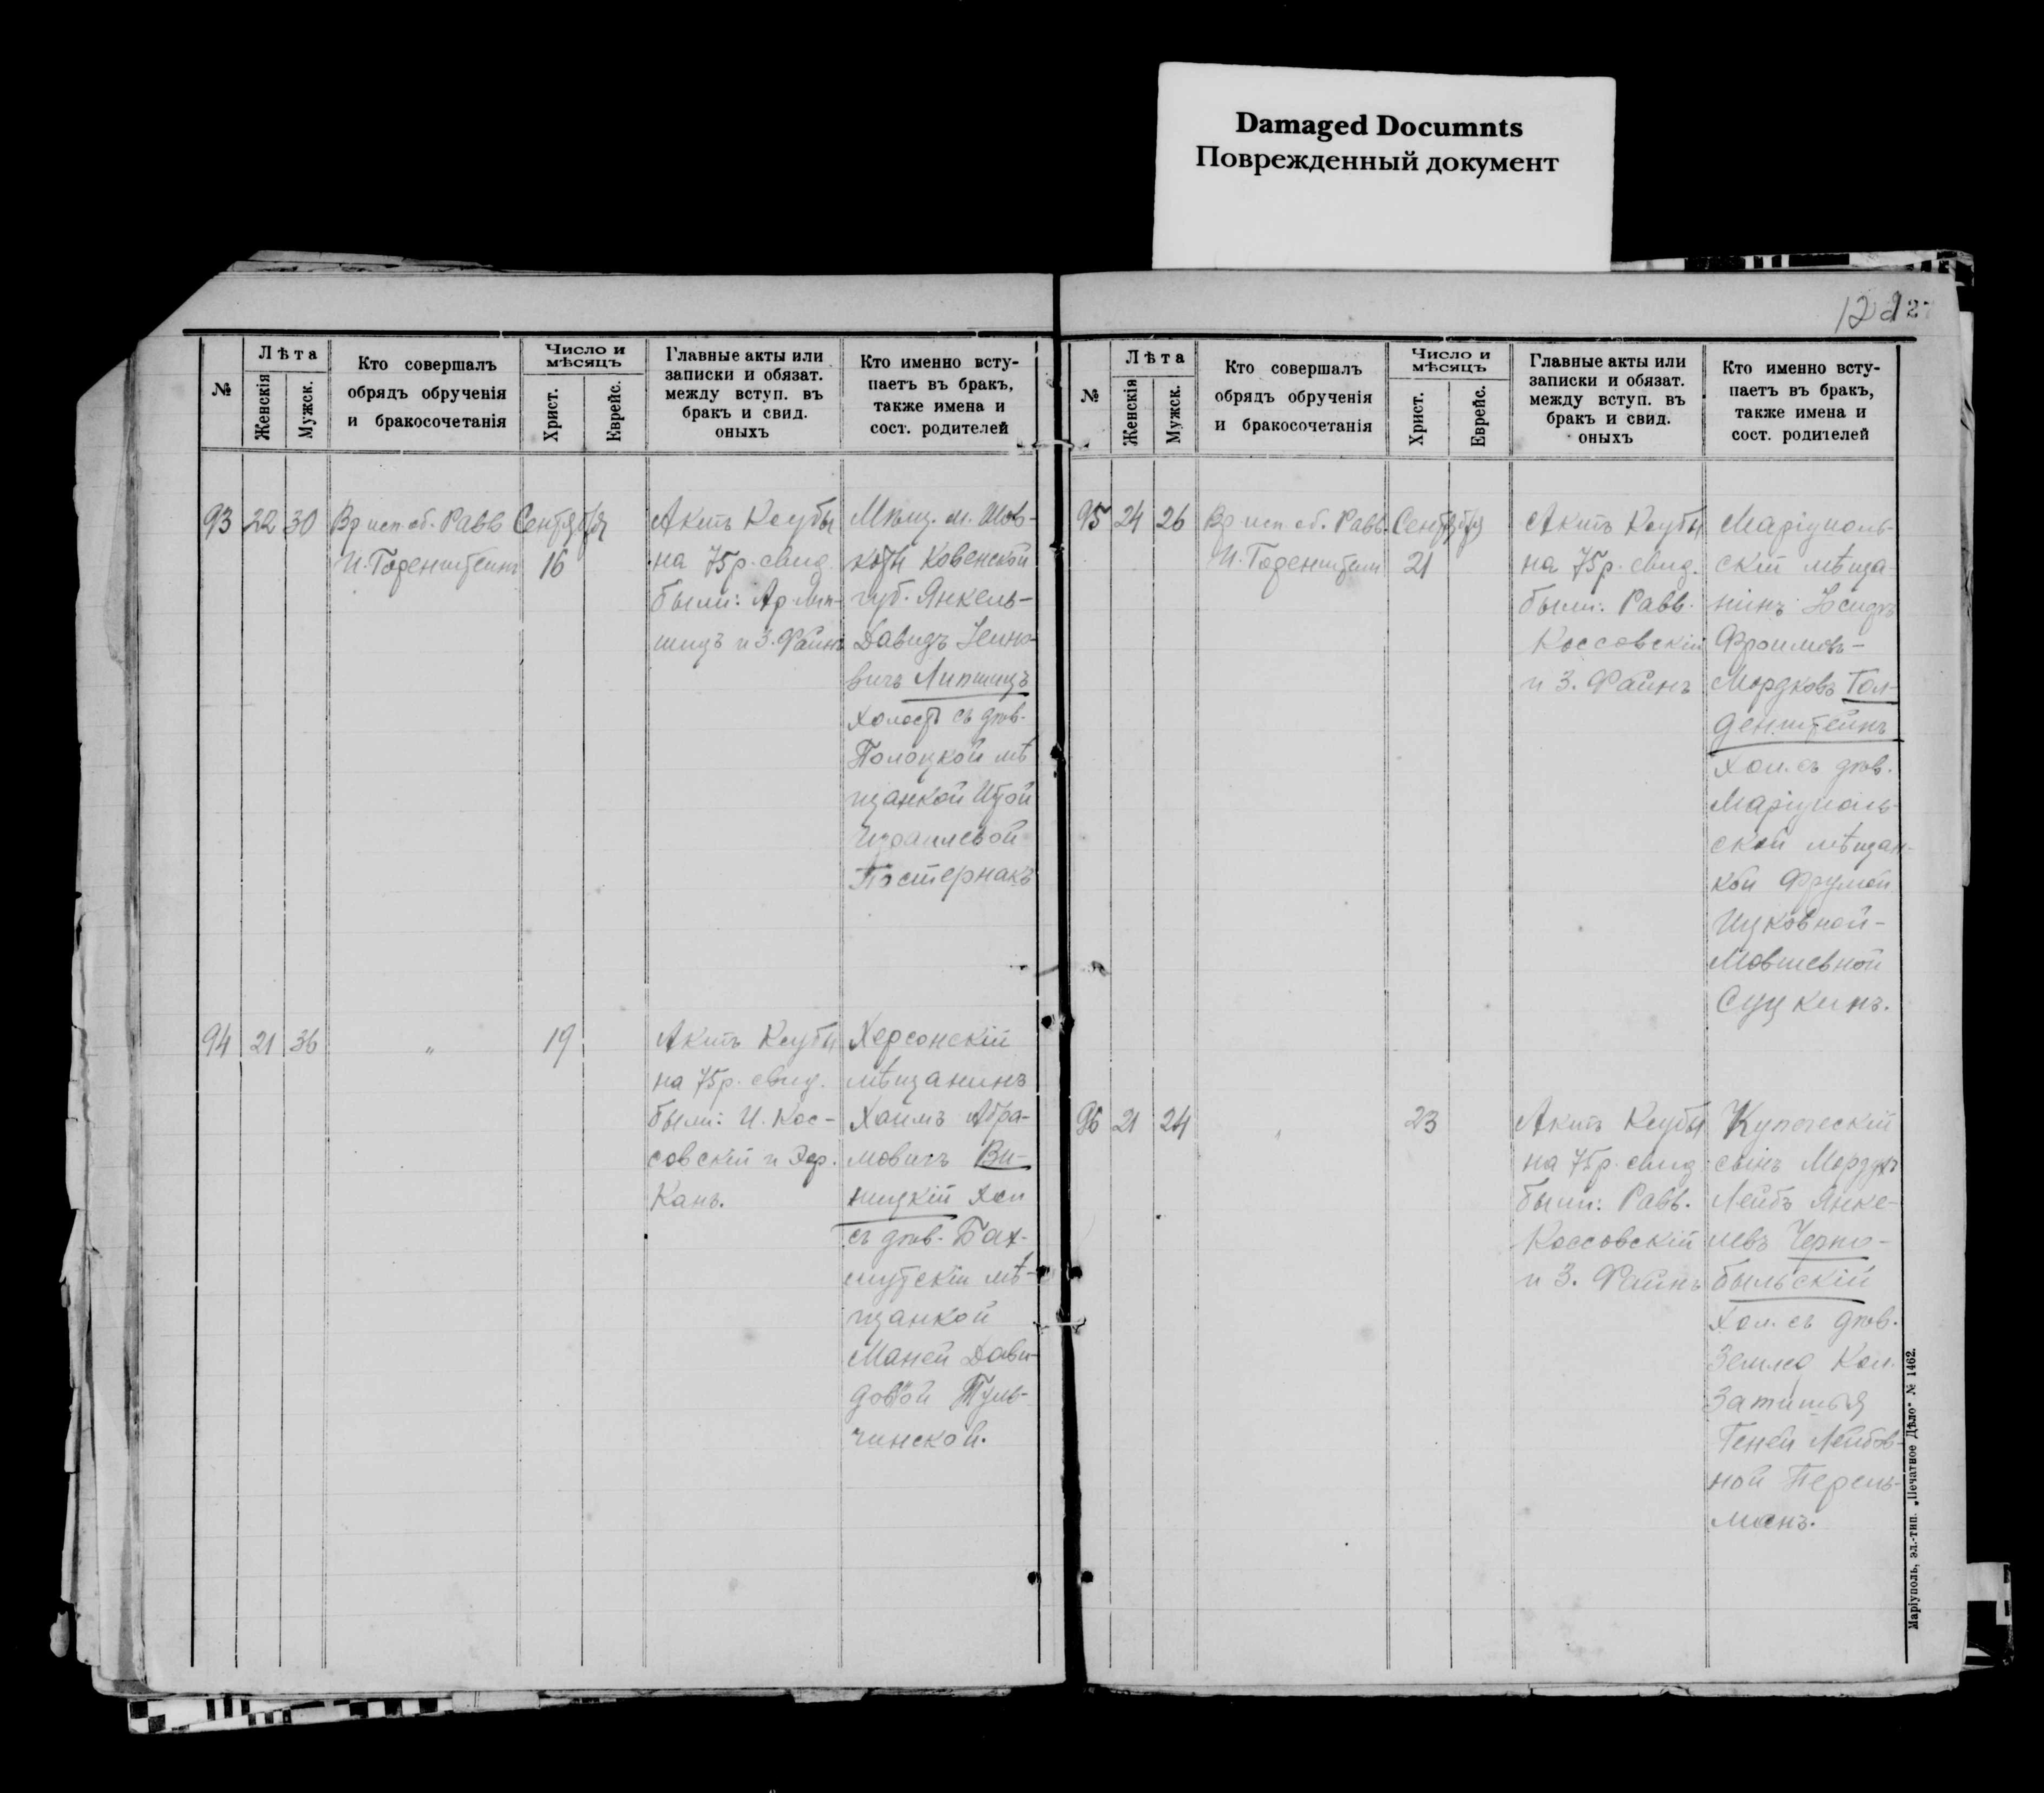 Damaged Documnts
Поврежденный документ
12
127
№
Лѣта
Женскія
Мужск.
Кто совершалъ
обрядъ обрученія
и бракосочетанія
Число и
мѣсяцъ
Христ.
Еврейс.
Главные акты или
записки и обязат.
между вступ. въ
бракъ и свид.
оныхъ
Кто именно всту-
паетъ въ бракъ,
также имена и
сост. родителей
93
22
30
Вр исп об. Равв
И. Горенштейнъ
Сентября
16
Актъ Ксубы
на 75 р. свид.
были: Ар. Лип-
шицъ и З. Файнъ
Мѣщ. м.
Ковенской
губ. Янкель-
Давидъ
вичъ Липшицъ
холост съ дѣв.
Полоцкой мѣ
щанкой Итой
Израилевой
Постернакъ
94
21
36
"
19
Актъ Ксубы
на 75 р. свид.
были: И. Кос-
совскій и Эер.
Канъ.
Херсонскій
мѣщанинъ
Хаимъ Абра-
мовичъ Ви-
ницкій хол
съ дѣв. Бах-
мутскій мѣ-
щанкой
Маней Дави-
довой Туль-
чинской.
№
Лѣта
Женскія
Мужск.
Кто совершалъ
обрядъ обрученія
и бракосочетанія
Число и
мѣсяцъ
Христ.
Еврейс.
Главные акты или
записки и обязат.
между вступ. въ
бракъ и свид.
оныхъ
Кто именно всту-
паетъ въ бракъ,
также имена и
сост. родителей
95
24
26
Вр исп об. Равв.
И. Горенштейн
Сентября
21
Актъ Ксубы
на 75 р. свид.
были: Равв.
Коссовскій
и З. Файнъ
Маріуполь-
скій мѣща
нинъ
Фроимовъ-
Мордковъ Гол-
денштейнъ
хол. съ дѣв.
Маріуполь-
ской мѣщан-
кой Фрумой
Ицковной-
Мовшевной
Суцкинъ.
96
21
24
"
23
Актъ Ксубы
на 75 р. свид
были: Равв.
Коссовскій
и З. Файнъ
Купеческій
сынъ Мордухъ
Лейбъ Янке-
левъ Черно-
быльскій
хол. съ дѣв.
Землед Кол.
Затишья
Геней Лейбов-
ной Перель-
манъ.
Маріуполь, эл.-тип. „Печатное Дѣло" № 1462.